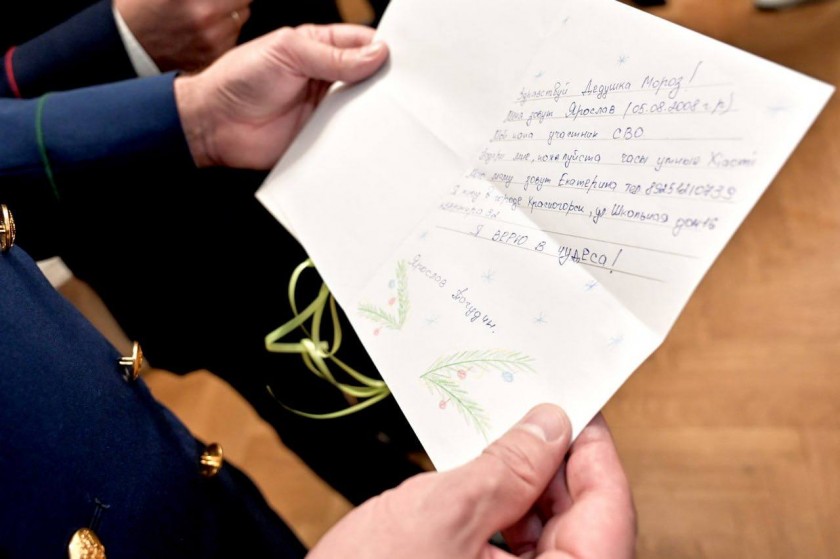 Здравствуй Дедушка Мороз!
Меня зовут Ярослав (05.08.2008 г.р)
Мой папа участник СВО
мне, пожалуйста часы умные Xiaomi
маму зовут Екатерина тел.
Я живу в городе Красногорск, ул Школьная дом 16
квартира
Я ВЕРЮ В ЧУДЕСА!
Ярослав